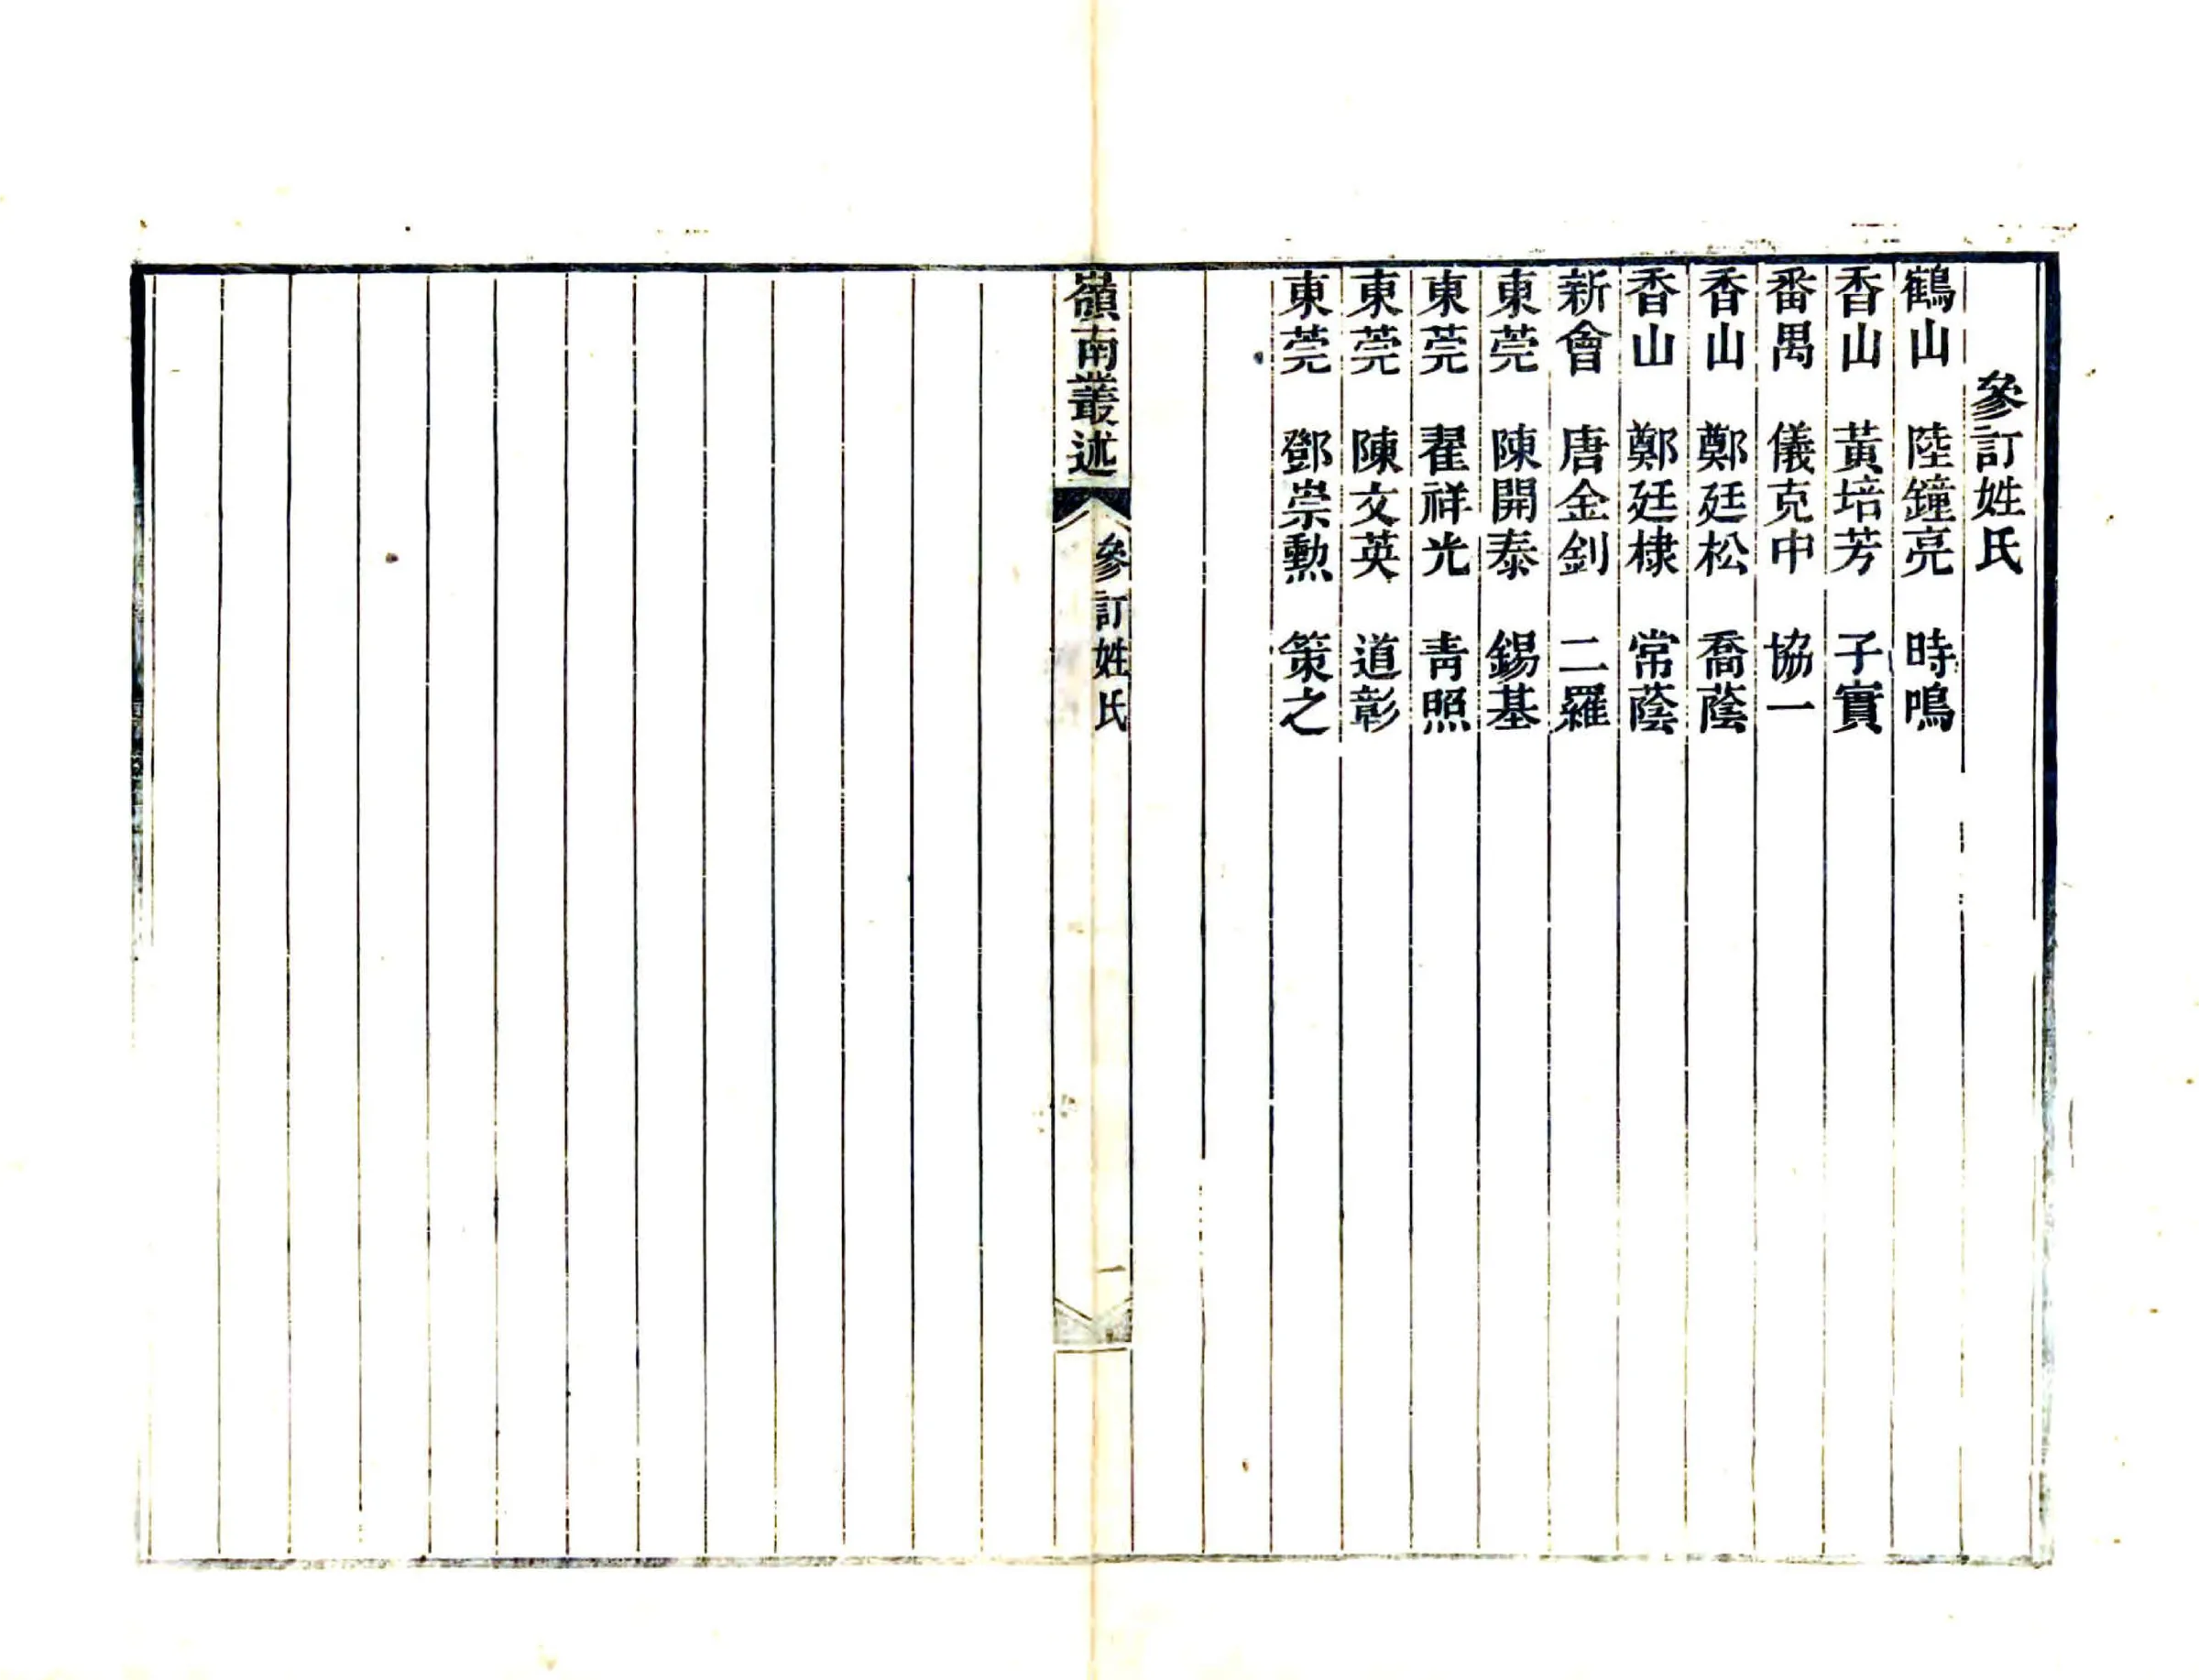 參訂姓氏
鶴山 陸鐘亮 時鳴
香山 黃培芳 子實
番禺 儀克中 協一
香山 鄭廷松 喬蔭
香山 鄭廷棣 常蔭
新會 唐金釗 二羅
東莞 陳開泰 錫基
東莞 翟祥光 青照
東莞 陳文英 道彰
東莞 鄧崇勲 策之
嶺南叢述 參訂姓氏 一